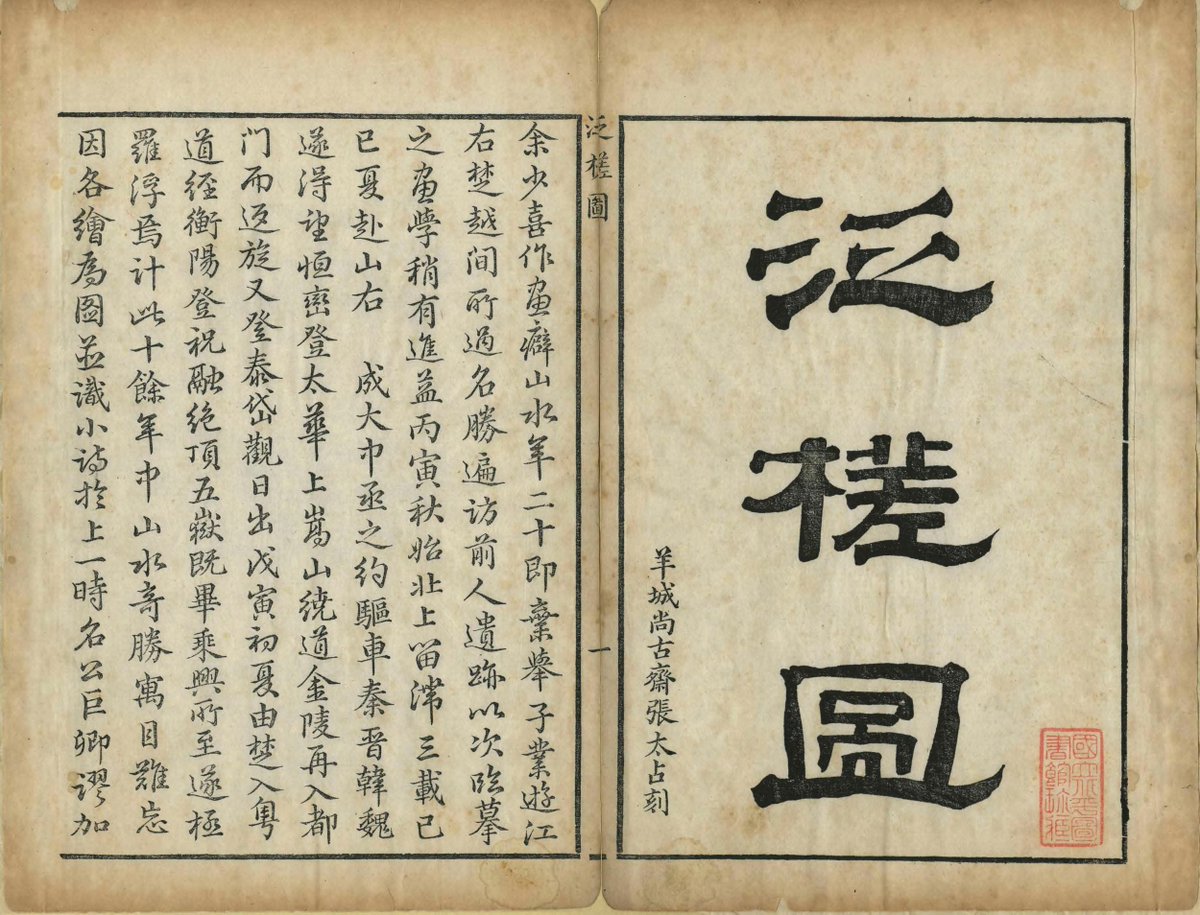 泛槎圖
羊城尚古齋張太占刻
國立北平圖
書館珍藏
泛槎圖 一
余少喜作畫癖山水年二十即棄舉子業遊江
右楚越間所過名勝遍訪前人遺跡以次臨摹
之畫學稍有進益丙寅秋始北上留滯三載己
巳夏赴山右 成大中丞之約驅車秦晉韓魏
遂得望恒巒登太華上嵩山繞道金陵再入都
門而返旋又登泰岱觀日出戊寅初夏由楚入粵
道經衡陽登祝融絕頂五嶽既畢乘興所至遂極
羅浮焉計此十餘年中山水奇勝寓目難忘
因各繪為圖並識小詩於上一時名公巨卿謬加